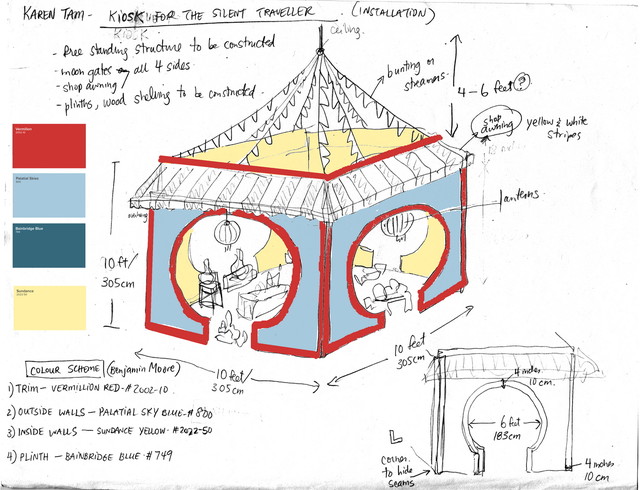 KAREN TAM - KIOSK FOR THE SILENT TRAVELLER (INSTALLATION)
KIOSK
- free standing structure to be constructed
- moon gates on all 4 sides.
- shop awning
- plinths, wood shelving to be constructed.
ceiling.
bunting or
streamers
4-6 feet ?
shop
awning
yellow & white
stripes
lanterns
Vermilion
Palatial Skies
Bainbridge Blue
Sundance
10 ft/
305cm
10 feet/
305cm
10 feet
305cm
COLOUR SCHEME (Benjamin Moore)
1) TRIM - VERMILLION RED - # 2002-10
2) OUTSIDE WALLS - PALATIAL SKY BLUE - # 800
3) INSIDE WALLS - SUNDANCE YELLOW - # 2022-50
4) PLINTH - BAINBRIDGE BLUE - # 749
4 inches
10 cm.
6 feet
183cm
corner
to hide
seams
4 inches
10 cm